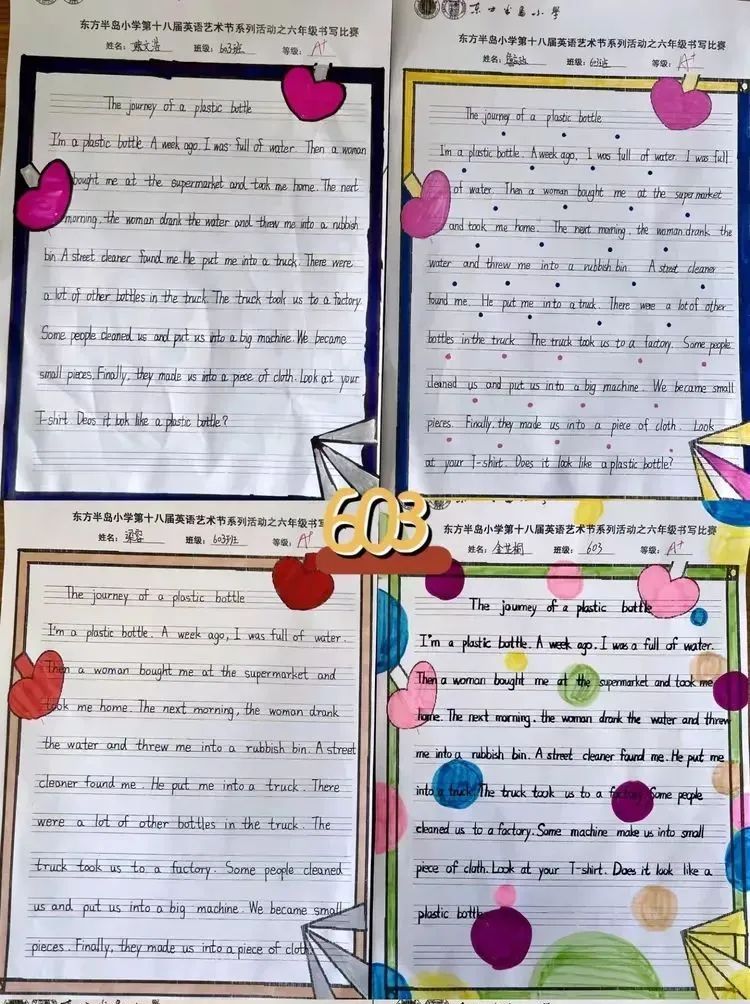 东方半岛小学第十八届英语艺术节系列活动之六年级书写比赛
姓名: 文浩 班级: 603班 等级: A+
The journey of a plastic bottle
I'm a plastic bottle. A week ago. I was full of water. Then a woman
bought me at the supermarket and took me home. The next
morning, the woman drank the water and threw me into a rubbish
bin. A street cleaner found me. He put me into a truck. There were
a lot of other bottles in the truck. The truck took us to a factory.
Some people cleaned us and put us into a big machine. We became
small pieces. Finally, they made us into a piece of cloth. Look at your
T-shirt. Deos it look like a plastic bottle?
东方半岛小学
东方半岛小学第十八届英语艺术节系列活动之六年级书写比赛
姓名: 班级: 603班 等级: A+
The journey of a plastic bottle
Im a plastic bottle. A week ago, I was full of water. I was full
of water. Then a woman bought me at the supermarket
and took me home. The next morning, the woman drank the
water and threw me into a rubbish bin. A street cleaner
found me. He put me into a truck. There were a lot of other
bottles in the truck. The truck took us to a factory. Some people
cleaned us and put us into a big machine. We became small
pieces. Finally, they made us into a piece of cloth. Look
at your T-shirt. Does it look like a plastic bottle?
603
东方半岛小学第十八届英语艺术节系列活动之六年级书写
姓名: 梁容 班级: 603班 等级: A+
The journey of a plastic bottle
I'm a plastic bottle. A week ago, I was full of water.
Then a woman bought me at the supermarket and
took me home. The next morning, the woman drank
the water and threw me into a rubbish bin. A street
cleaner found me. He put me into a truck. There
were a lot of other bottles in the truck. The
truck took us to a factory. Some people cleaned
us and put us into a big machine. We became small
pieces. Finally, they made us into a piece of cloth.
东方半岛小学第十八届英语艺术节系列活动之六年级书写比赛
姓名: 金芷桐 班级: 603 等级: A+
The journey of a plastic bottle
I'm a plastic bottle. A week ago. I was a full of water.
Then a woman bought me at the supermarket and took me
home. The next morning, the woman drank the water and threw
me into a rubbish bin. A street cleaner found me. He put me
into a truck. The truck took us to a factory Some people
cleaned us to a factory. Some machine make us into small
piece of cloth. Look at your T-shirt. Does it look like a
plastic bottle